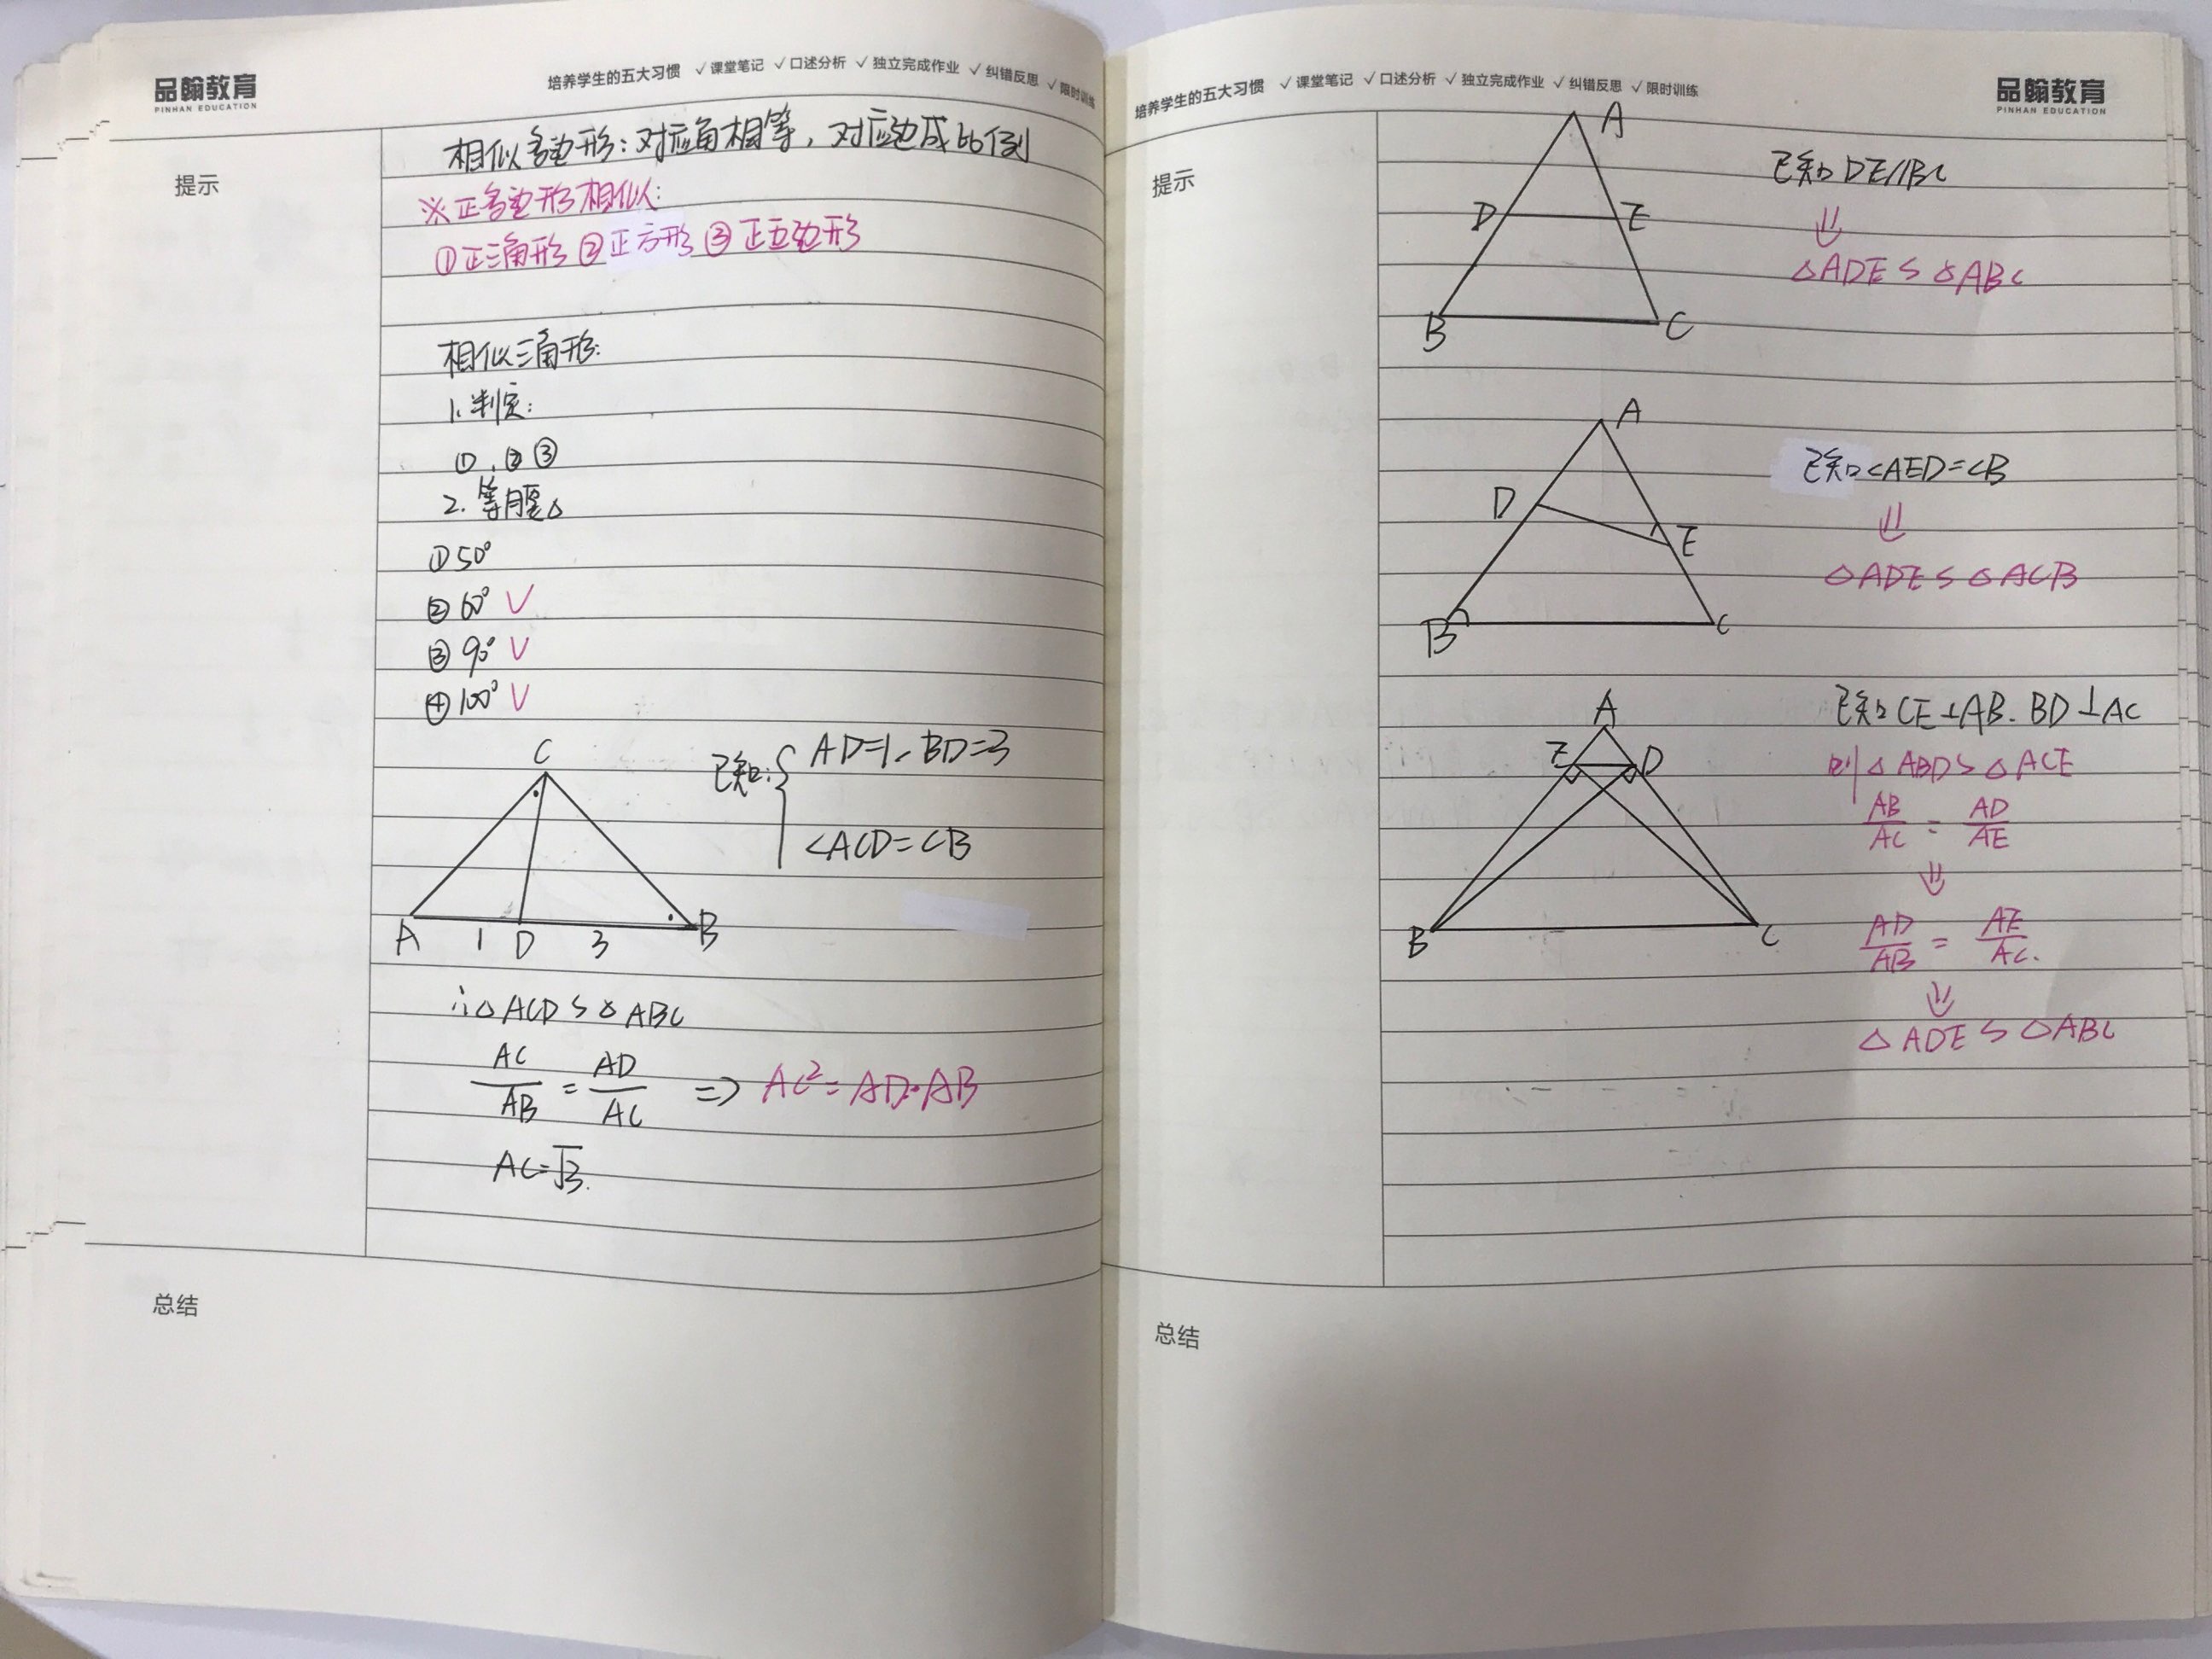 品翰教育
PINHAN EDUCATION
培养学生的五大习惯 √课堂笔记 √口述分析 √独立完成作业 √纠错反思 √限时训练
提示
相似多边形:对应角相等,对应边成比例
※正多边形相似:
①正三角形 ②正方形 ③正五边形
相似三角形:
1.判定:
①,② ③
2.等腰△
①50°
②60° V
③90° V
④100° V
已知:{ AD=1、BD=3
∠ACD=∠B
C
A 1 D 3 B
∴△ACD∽△ABC
AC/AB = AD/AC => AC²=AD·AB
AC=√3.
总结
培养学生的五大习惯 √课堂笔记 √口述分析 √独立完成作业 √纠错反思 √限时训练
品翰教育
PINHAN EDUCATION
提示
A
D E
B C
已知DE//BC
⇓
△ADE∽△ABC
A
D
E
B C
已知∠AED=∠B
⇓
△ADE∽△ACB
A
E D
B C
已知CE⊥AB、BD⊥AC
则△ABD∽△ACE
AB/AC = AD/AE
⇓
AD/AB = AE/AC.
⇓
△ADE∽△ABC
总结